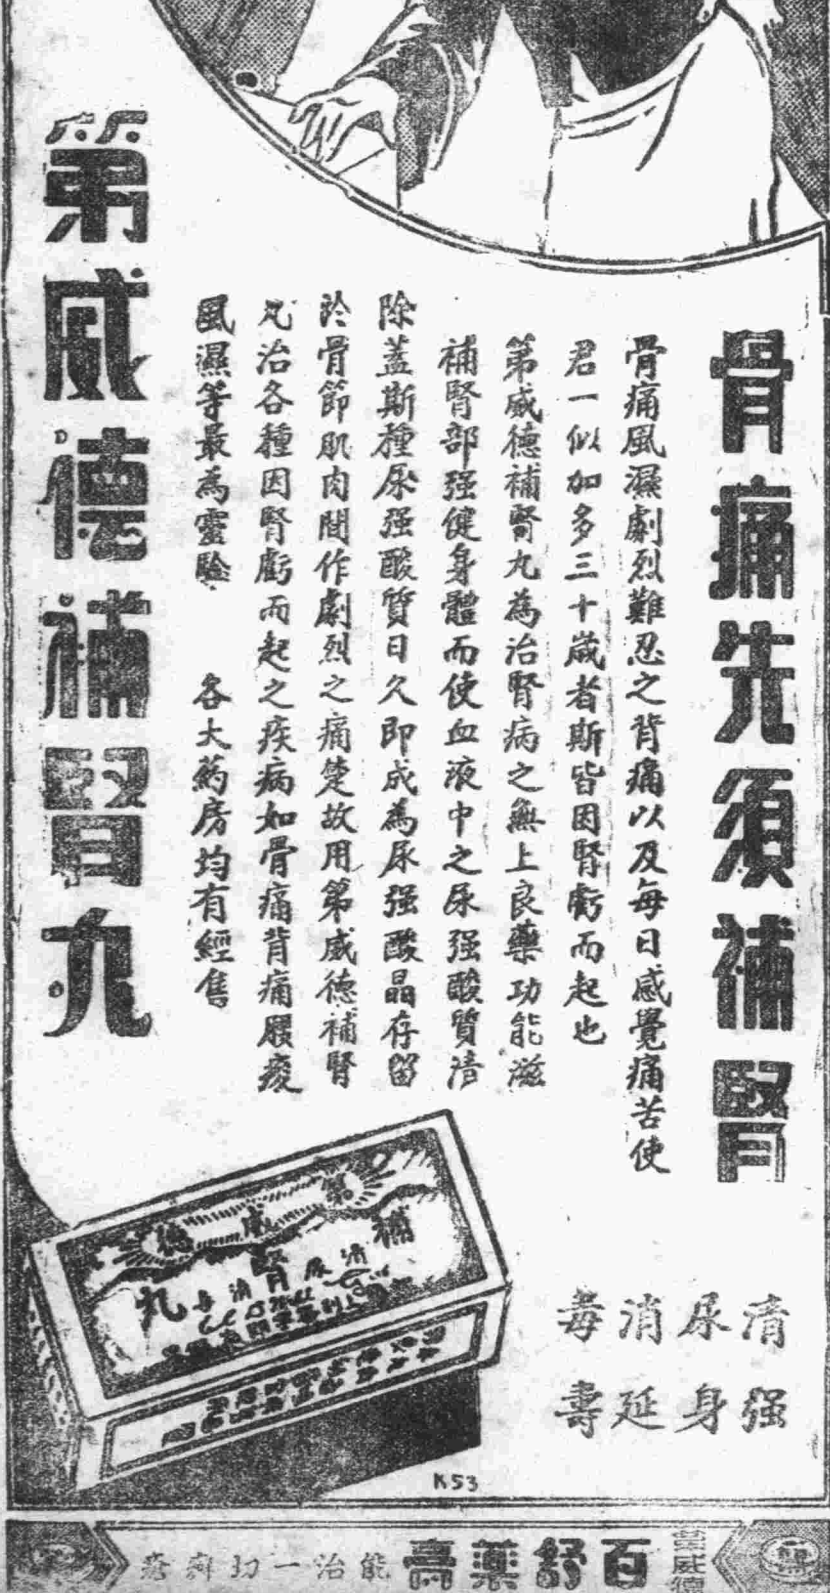 骨痛先須補腎
骨痛風濕劇烈難忍之背痛以及每日感覺痛苦使
君一似加多三十歲者斯皆因腎虧而起也
第威德補腎丸為治腎病之無上良藥功能滋
補腎部强健身體而使血液中之尿强酸質清
除蓋斯種尿强酸質日久即成為尿强酸晶存留
於骨節肌肉間作劇烈之痛楚故用第威德補腎
凡治各種因腎虧而起之疾病如骨痛背痛腰痠
風濕等最為靈驗 各大葯房均有經售
第威德補腎丸
清尿消毒
强身延壽
第威德
補腎丸
K53
第威德
百舒藥膏
能治一切癬瘡